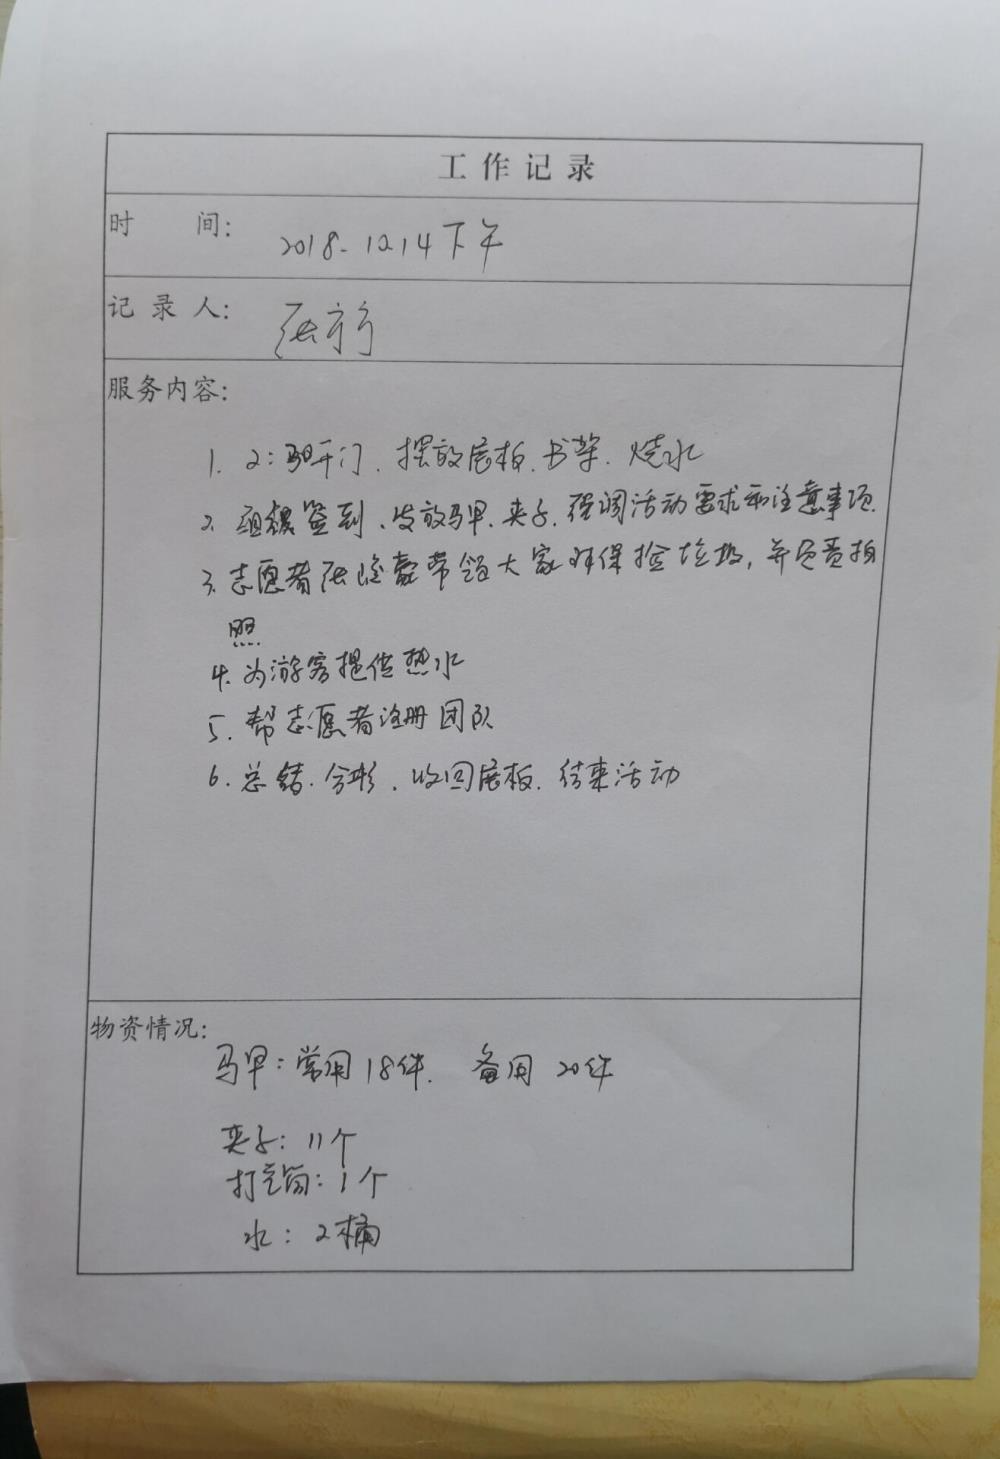 工作记录
时 间: 2018-12.14下午
记录人: 张
服务内容:
1. 2:开门、摆放展板、书架、烧水
2. 组织签到、发放马甲、夹子、强调活动要求和注意事项
3. 志愿者张豪带领大家环保捡垃圾, 并负责拍
照
4. 为游客提供热水
5. 帮志愿者注册团队
6. 总结、分析、收回展板、结束活动
物资情况:
马甲: 常用18件. 备用 20件
夹子: 11个
打气筒: 1个
水: 2桶